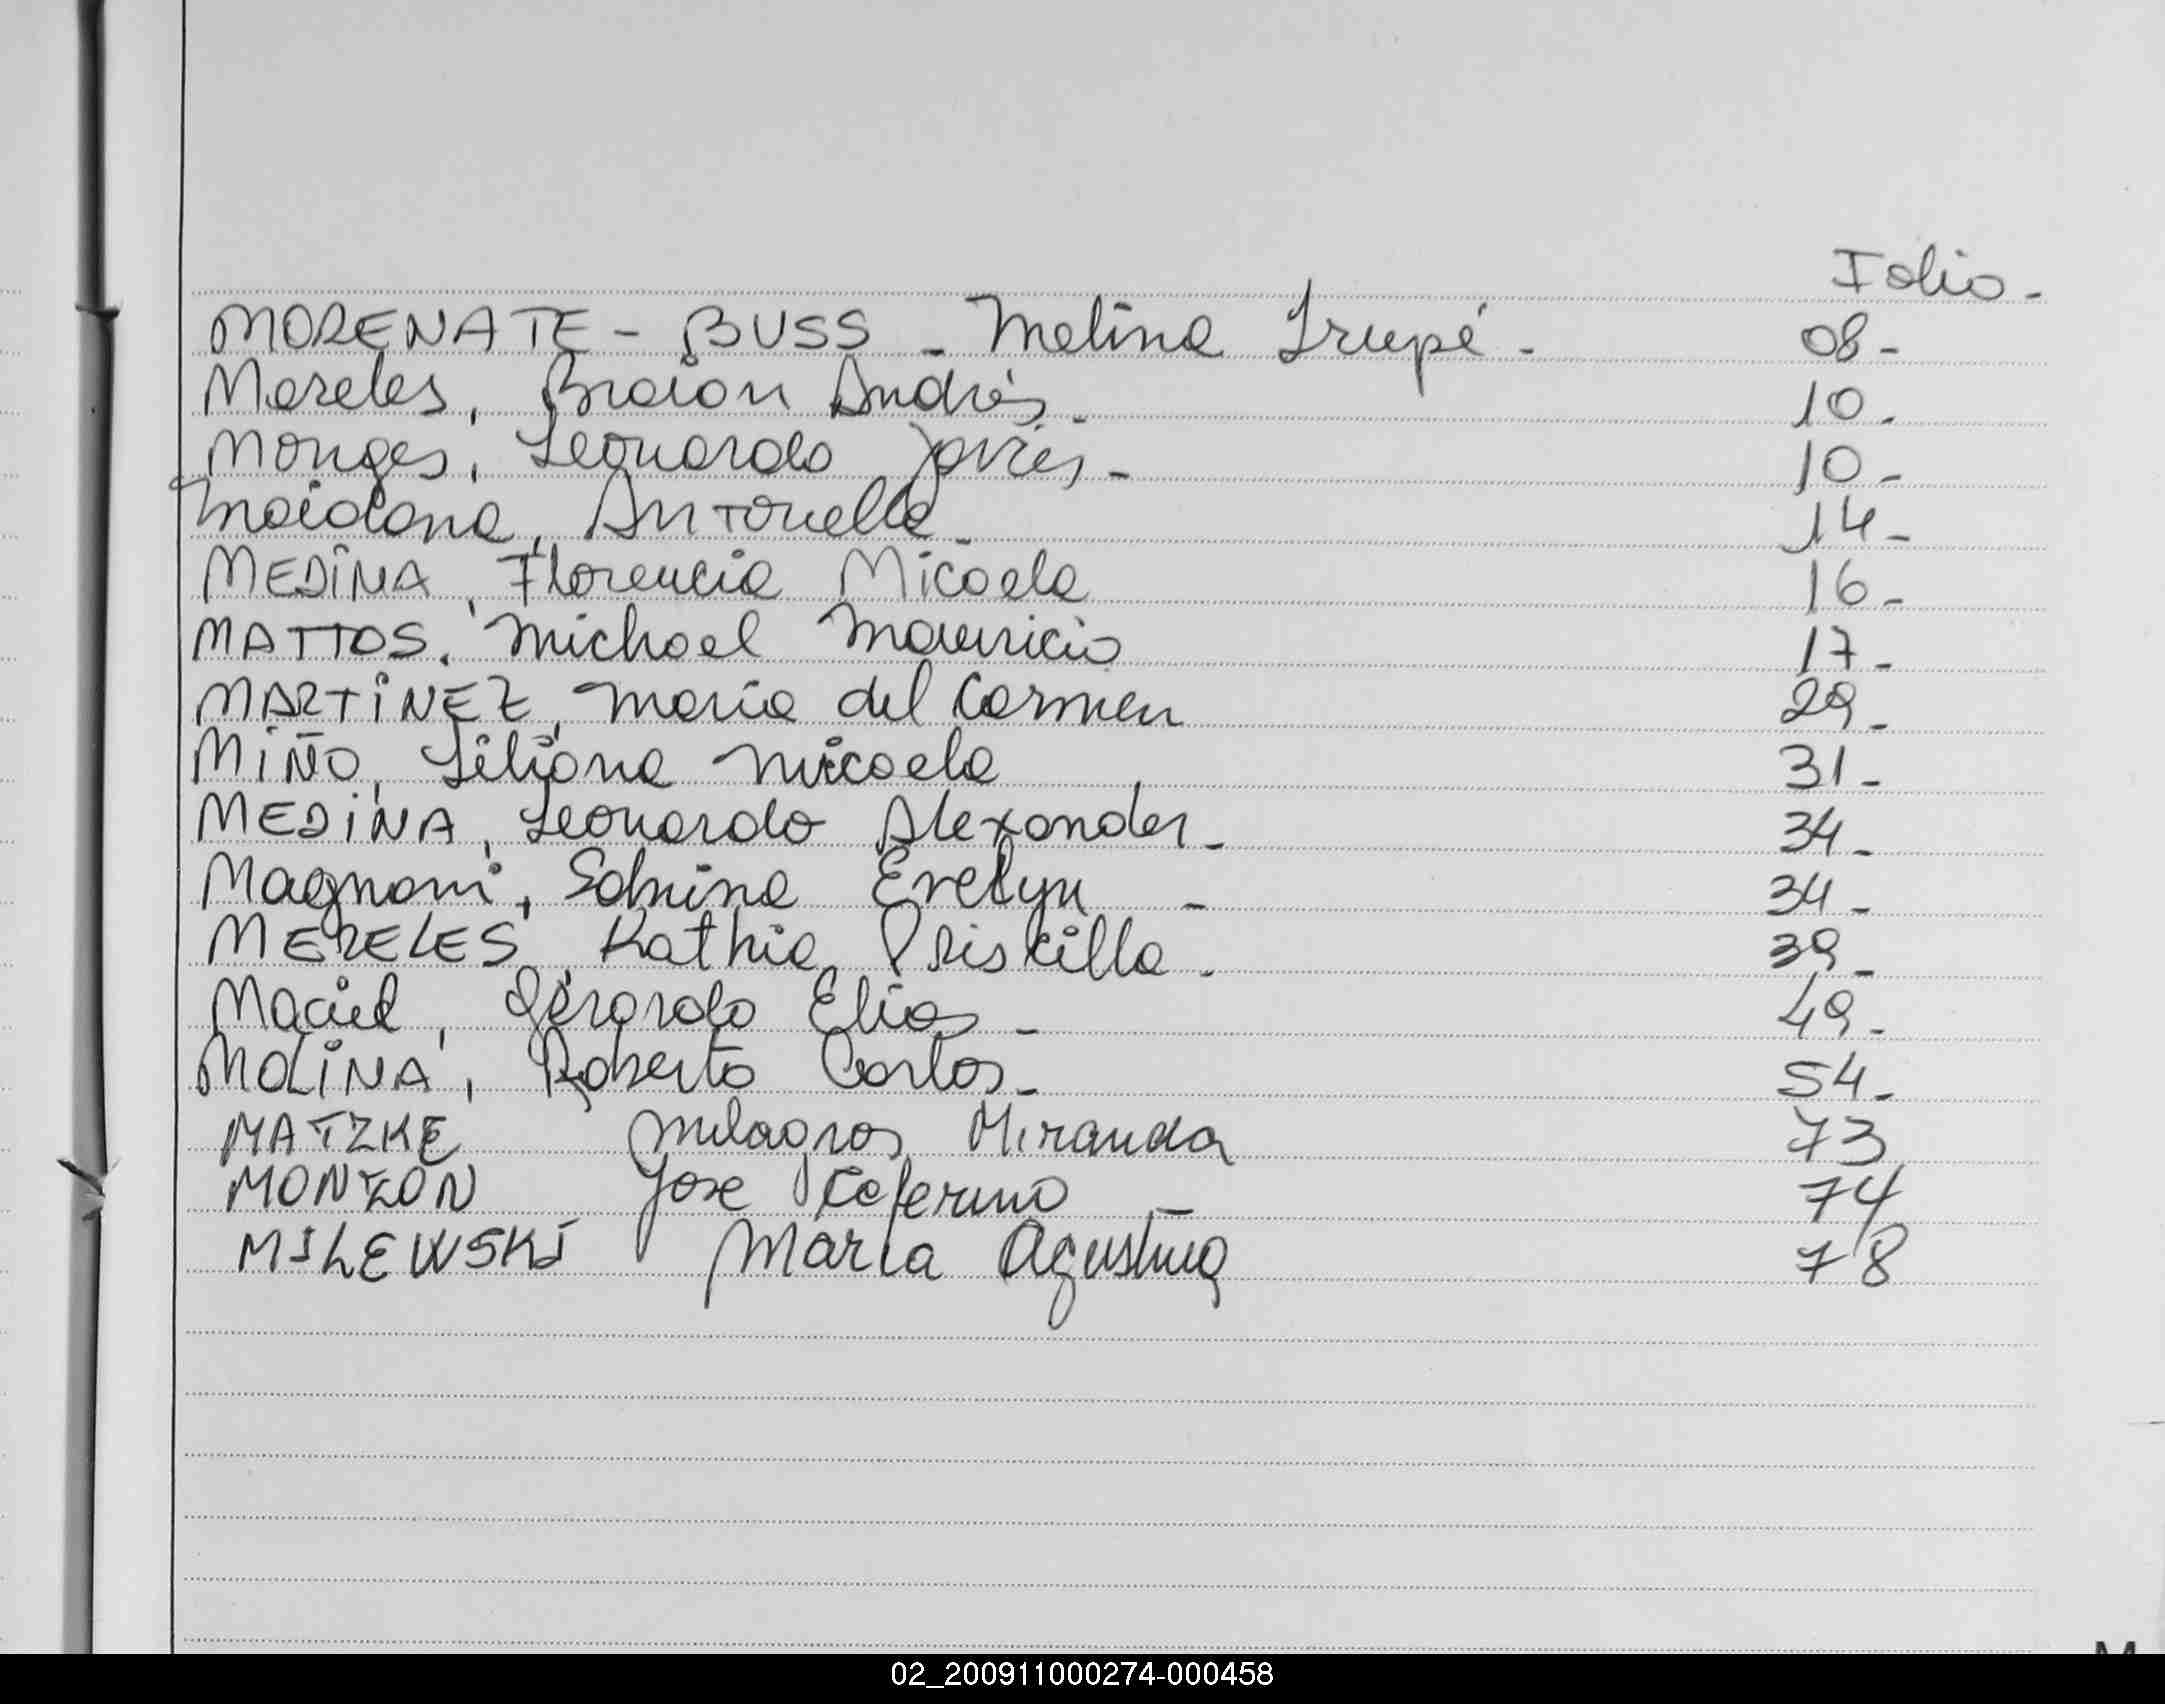 Folio -
MORENATE - BUSS - Melina Irupé - 08 -
Mereles, Braian Andrés - 10 -
Monges, Leonardo Javier - 10 -
Maidana, Antonella - 14 -
MEDINA, Florencia Micaela 16 -
MATTOS, Michael Mauricio 17 -
MARTINEZ, Maria del Carmen 29 -
MIÑO, Liliana Micaela 31 -
MEDINA, Leonardo Alexander - 34 -
Magnoni, Sabrina Evelyn - 34 -
MERELES, Kathia Priskilla - 39 -
Maciel, Gerardo Elias - 49 -
MOLINA, Roberto Carlos - 54 -
MATZKE Milagros Miranda 73
MONZON Jose Ceferino - 74
MILEWSKI Maria Agustina 78
02_200911000274-000458